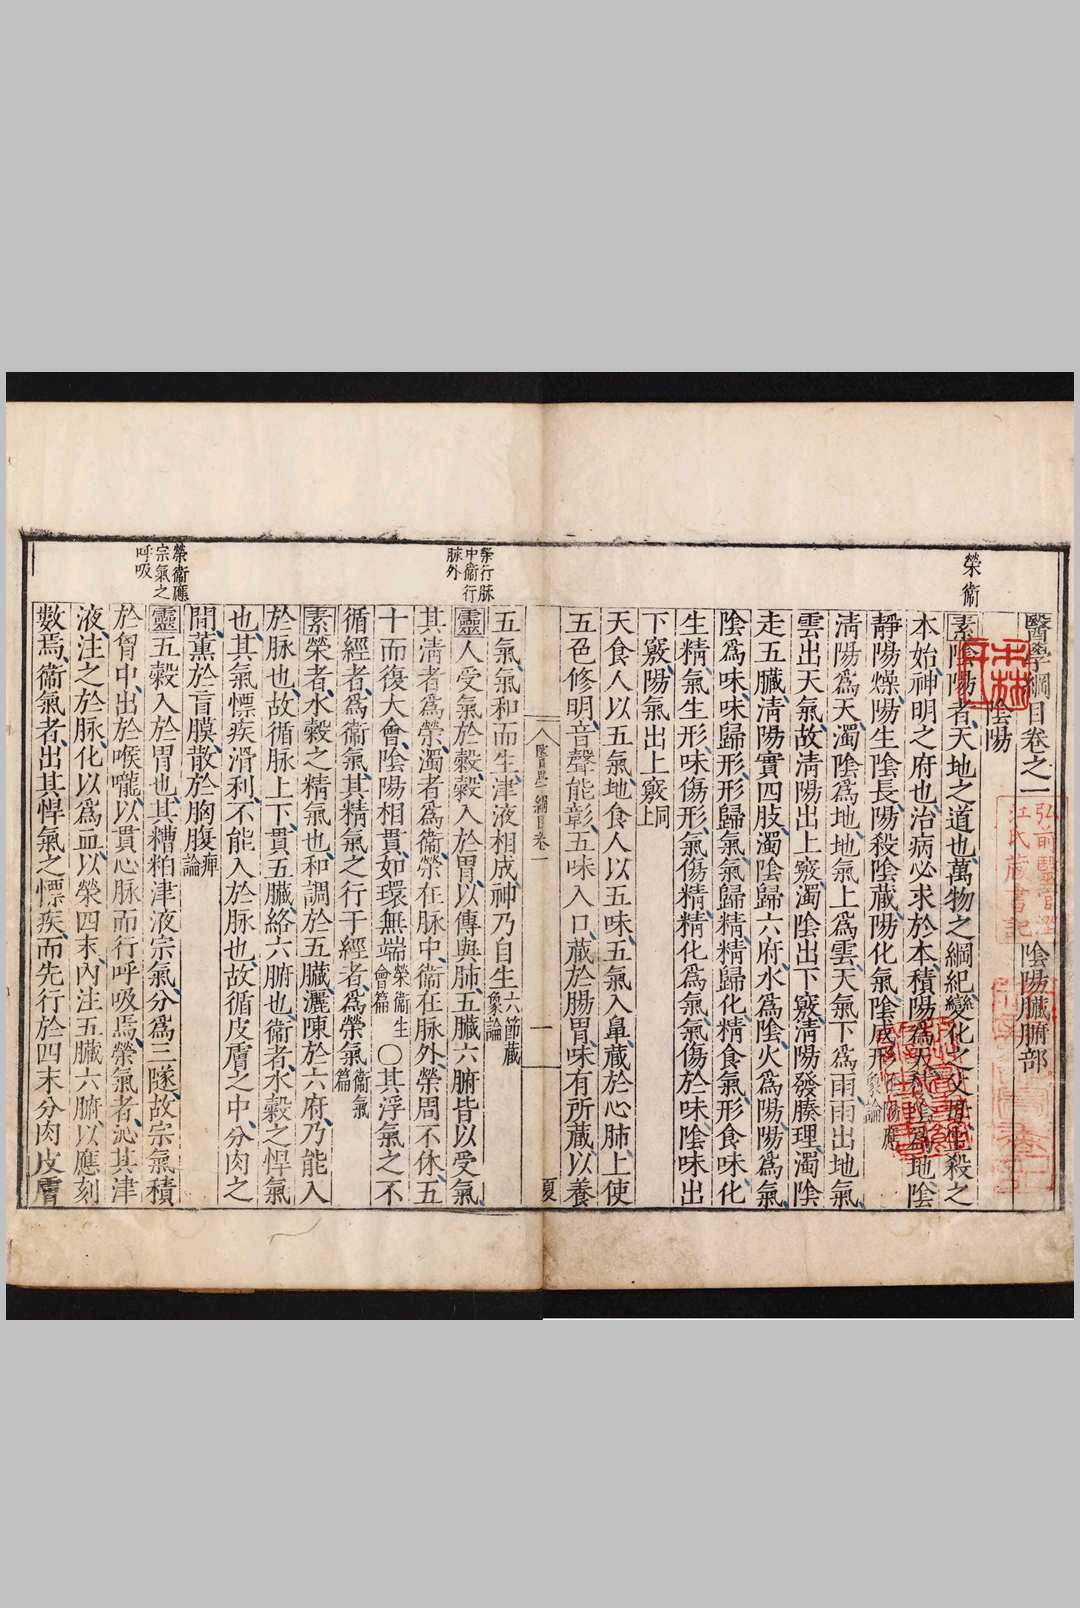 醫學綱目卷之一 陰陽臟腑部
陰陽
榮衞
素陰陽者天地之道也萬物之綱紀變化之父母生殺之
本始神明之府也治病必求於本積陽爲天積陰爲地陰
靜陽燥陽生陰長陽殺陰藏陽化氣陰成形
清陽爲天濁陰爲地地氣上爲雲天氣下爲雨雨出地氣
雲出天氣故清陽出上竅濁陰出下竅清陽發腠理濁陰
走五臟清陽實四肢濁陰歸六府水爲陰火爲陽陽爲氣
陰爲味味歸形形歸氣氣歸精精歸化精食氣形食味化
生精氣生形味傷形氣傷精精化爲氣氣傷於味陰味出
下竅陽氣出上竅同上
天食人以五氣地食人以五味五氣入鼻藏於心肺上使
五色修明音聲能彰五味入口藏於腸胃味有所藏以養
醫學綱目卷一
一
夏
五氣氣和而生津液相成神乃自生六節藏象論
榮行脉中衞行脉外
靈人受氣於穀穀入於胃以傳與肺五臟六腑皆以受氣
其清者爲榮濁者爲衞榮在脉中衞在脉外榮周不休五
十而復大會陰陽相貫如環無端榮衞生會篇○其浮氣之不
循經者爲衞氣其精氣之行于經者爲榮氣衞氣篇
素榮者水穀之精氣也和調於五臟灑陳於六府乃能入
於脉也故循脉上下貫五臟絡六腑也衞者水穀之悍氣
也其氣慓疾滑利不能入於脉也故循皮膚之中分肉之
間薰於肓膜散於胸腹痺論
榮衞應宗氣之呼吸
靈五穀入於胃也其糟粕津液宗氣分爲三隧故宗氣積
於胷中出於喉嚨以貫心脉而行呼吸焉榮氣者沁其津
液注之於脉化以爲血以榮四末內注五臟六腑以應刻
數焉衞氣者出其悍氣之慓疾而先行於四末分肉皮膚